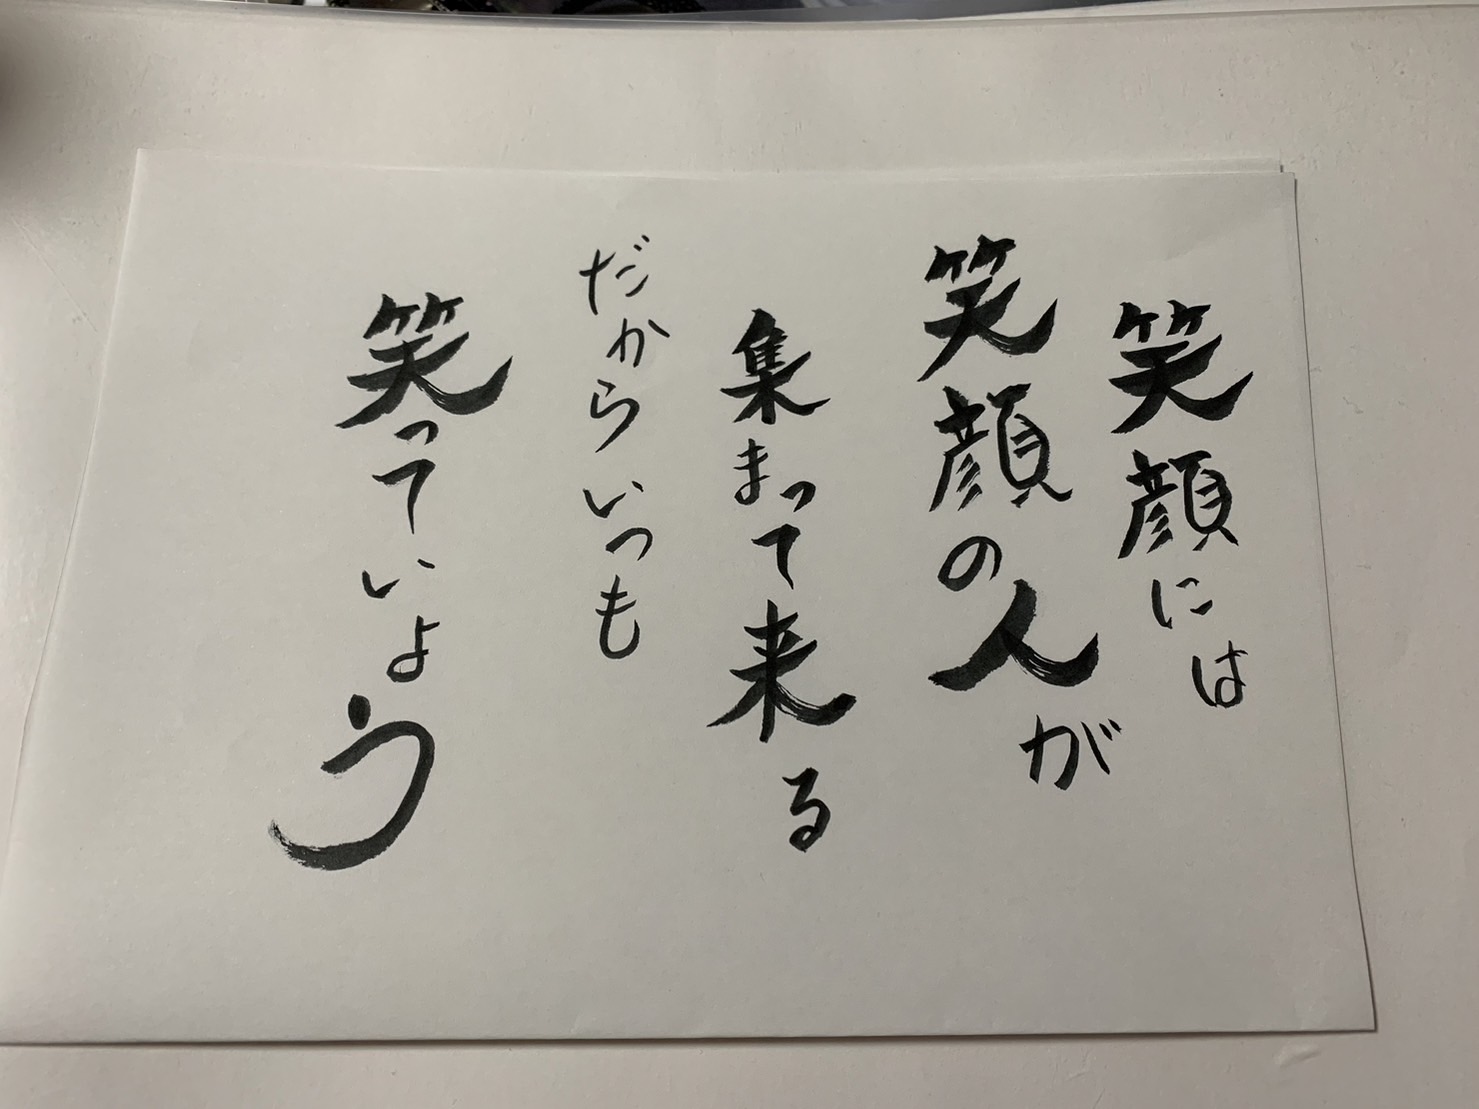 笑顔には
笑顔の人が
集まって来る
だからいつも
笑っていよう